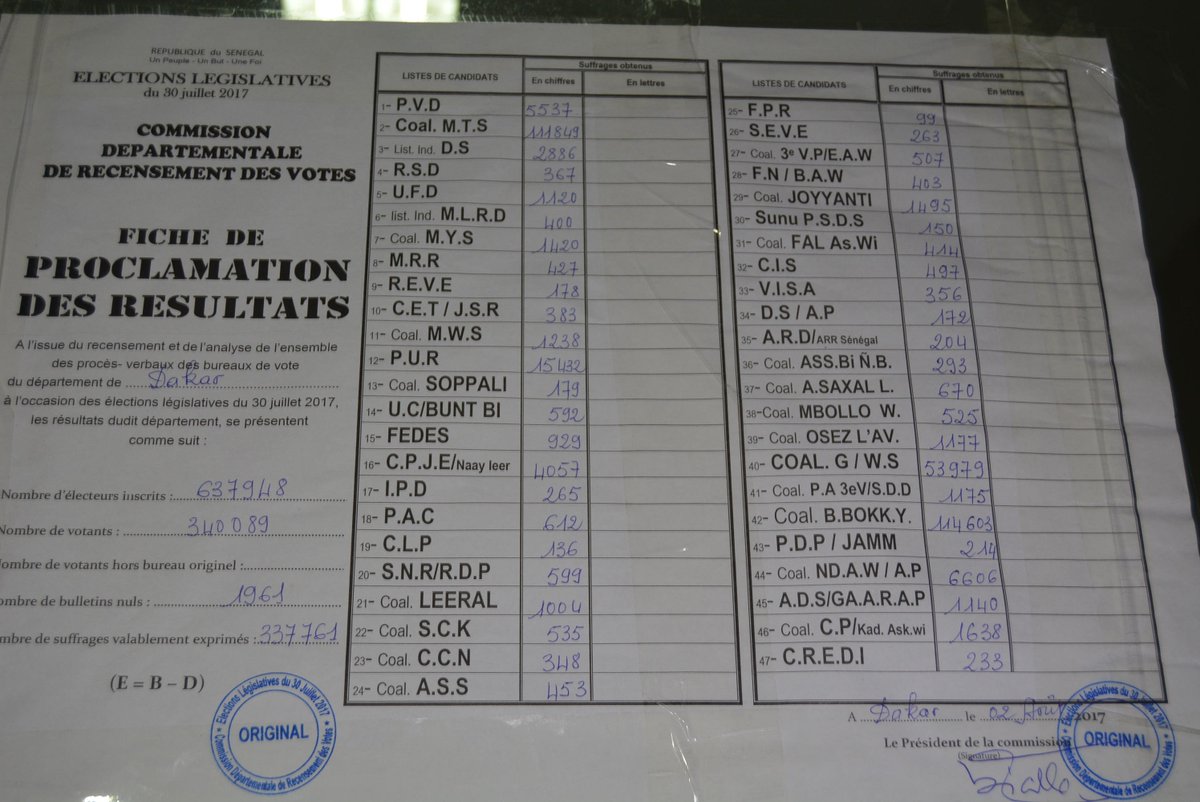 REPUBLIQUE du SENEGAL
Un Peuple - Un But - Une Foi
ELECTIONS LEGISLATIVES
du 30 juillet 2017
COMMISSION
DEPARTEMENTALE
DE RECENSEMENT DES VOTES
FICHE DE
PROCLAMATION
DES RESULTATS
A l'issue du recensement et de l'analyse de l'ensemble
des procès- verbaux des bureaux de vote
du département de Dakar
à l'occasion des élections législatives du 30 juillet 2017,
les résultats dudit département, se présentent
comme suit :
Nombre d'électeurs inscrits : 637948
Nombre de votants : 340089
Nombre de votants hors bureau originel :
ombre de bulletins nuls : 1961
mbre de suffrages valablement exprimés : 337761
(E = B – D)
Elections Législatives du 30 Juillet 2017
ORIGINAL
Commission Départementale de Recensement des Votes
LISTES DE CANDIDATS Suffrages obtenus
En chiffres En lettres
1- P.V.D 5537
2- Coal. M.T.S 111849
3- List. Ind. D.S 2886
4- R.S.D 367
5- U.F.D 1120
6- list. Ind. M.L.R.D 400
7- Coal. M.Y.S 1420
8- M.R.R 427
9- R.E.V.E 178
10- C.E.T / J.S.R 383
11- Coal. M.W.S 1238
12- P.U.R 15432
13- Coal. SOPPALI 179
14- U.C/BUNT BI 592
15- FEDES 929
16- C.P.J.E/Naay leer 4057
17- I.P.D 265
18- P.A.C 612
19- C.L.P 136
20- S.N.R/R.D.P 599
21- Coal. LEERAL 1004
22- Coal. S.C.K 535
23- Coal. C.C.N 348
24- Coal. A.S.S 453
LISTES DE CANDIDATS Suffrages obtenus
En chiffres En lettres
25- F.P.R 99
26- S.E.V.E 263
27- Coal. 3e V.P/E.A.W 507
28- F.N / B.A.W 403
29- Coal. JOYYANTI 1495
30- Sunu P.S.D.S 150
31- Coal. FAL As.Wi 414
32- C.I.S 497
33- V.I.S.A 356
34- D.S / A.P 172
35- A.R.D/ARR Sénégal 204
36- Coal. ASS.Bi Ñ.B. 293
37- Coal. A.SAXAL L. 670
38-Coal. MBOLLO W. 525
39- Coal. OSEZ L'AV. 1177
40- COAL. G / W.S 53979
41- Coal. P.A 3eV/S.D.D 1175
42- Coal. B.BOKK.Y. 114603
43- P.D.P / JAMM 214
44- Coal. ND.A.W / A.P 6606
45- A.D.S/GA.A.R.A.P 1140
46- Coal. C.P/Kad. Ask.wi 1638
47- C.R.E.D.I 233
A Dakar le 02 Août 2017
Le Président de la commission
(Signature)
Elections Législatives du 30 Juillet 2017
ORIGINAL
Commission Départementale de Recensement des Votes